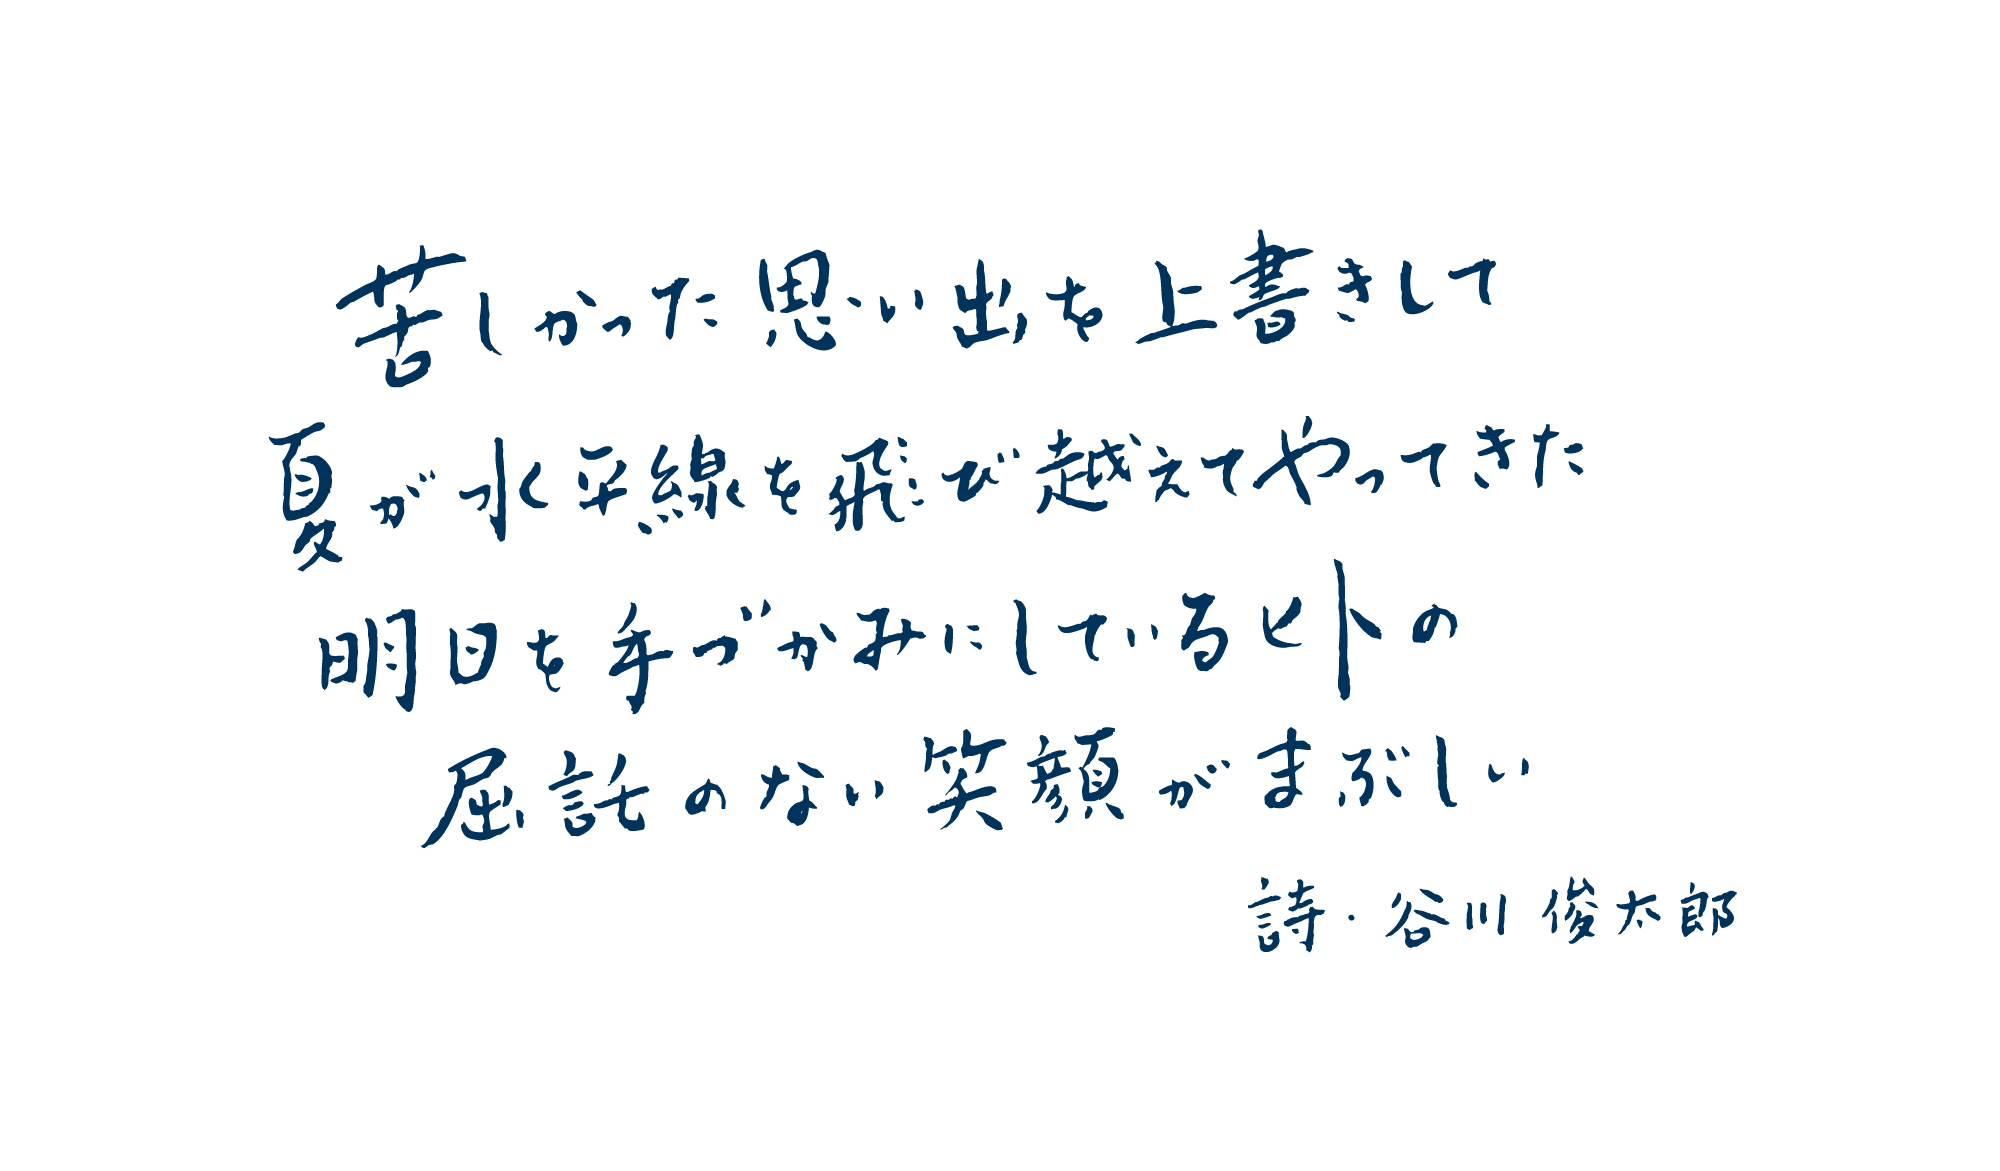 苦しかった思い出を上書きして
夏が水平線を飛び越えてやってきた
明日を手づかみにしているヒトの
屈託のない笑顔がまぶしい
詩・谷川俊太郎